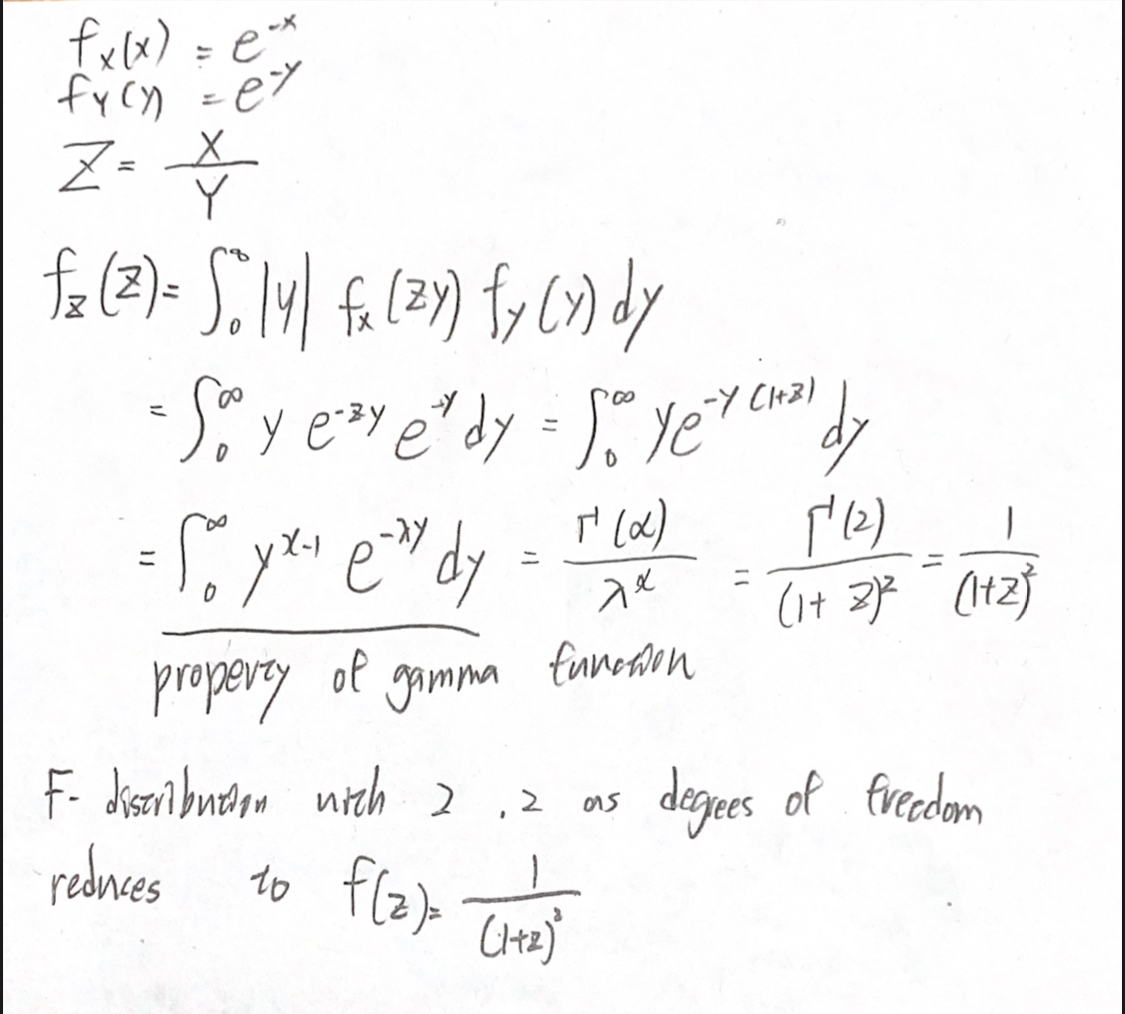 fₓ(x) = e^{-x}
f_Y(y) = e^{-y}
Z = X/Y
f_Z(z) = ∫₀^∞ |y| fₓ(zy) f_y(y) dy
= ∫₀^∞ y e^{-zy} e^{-y} dy = ∫₀^∞ y e^{-y(1+z)} dy
= ∫₀^∞ y^{α-1} e^{-λy} dy = Γ(α)/λ^α = Γ(2)/(1+z)² = 1/(1+z)²
property of gamma function
F- distribution with 2 , 2 as degrees of freedom
reduces to f(z) = 1/(1+z)²